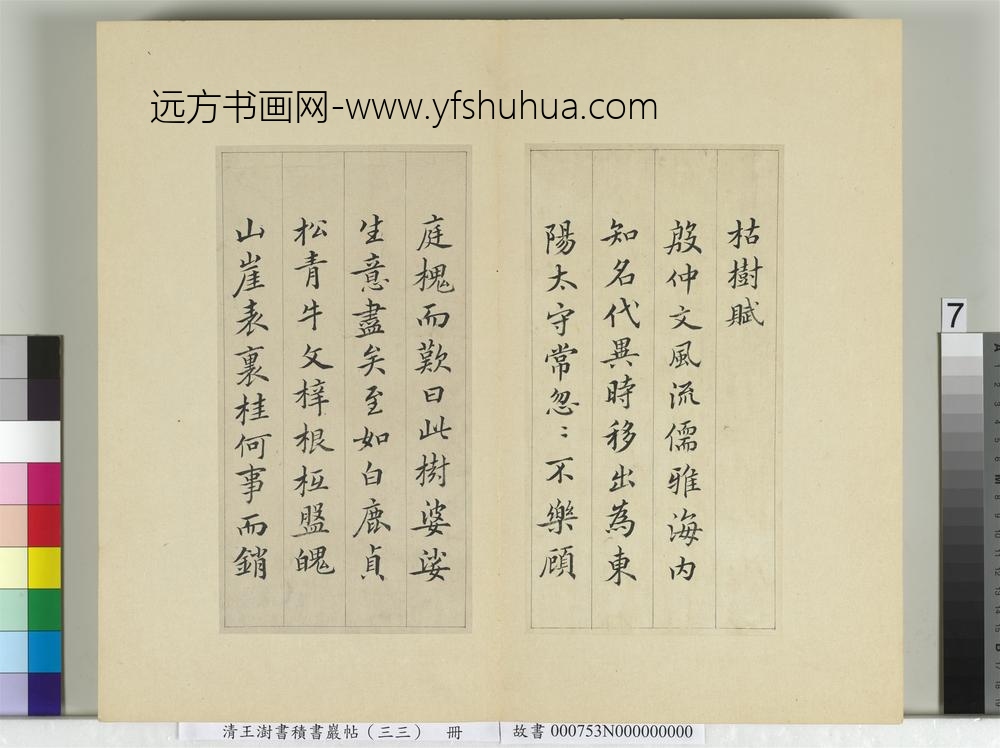 远方书画网-www.yfshuhua.com
枯樹賦
殷仲文風流儒雅海内
知名代異時移出為東
陽太守常忽〻不樂顧
庭槐而歎曰此樹婆娑
生意盡矣至如白鹿貞
松青牛文梓根柢盤魄
山崖表裏桂何事而銷
7
清王澍書積書巖帖（三三） 冊
故書 000753N000000000